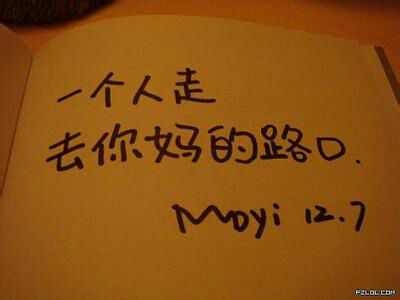 一个人走
去你妈的路口.
Moyi 12.7
FZLOL.COM